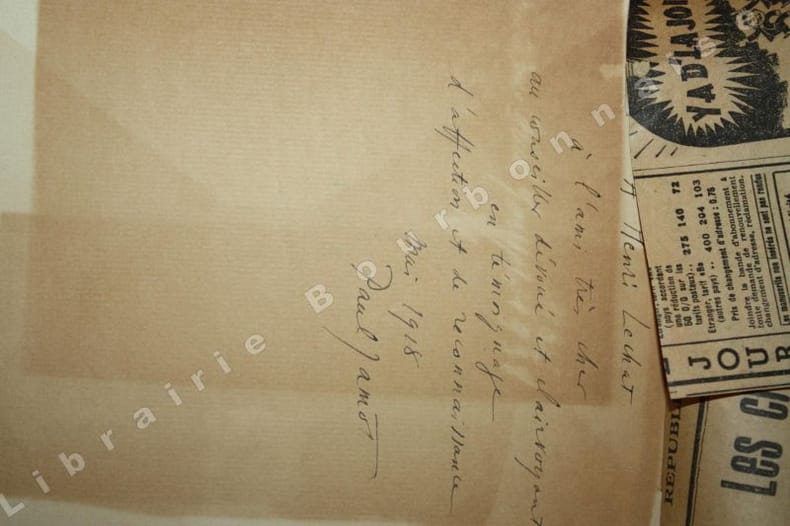 A Henri Lechat
à l'ami très cher
au conseiller dévoué et clairvoyant
en témoignage
d'affection et de reconnaissance
Mai 1918
Paul Jamot
Librairie Bourbonnaise
YA D'LA JOI
72
140
275
103
204
400
(pays, accordant
une réduction de
50 0/0 sur les
tarifs postaux)..
Etranger, tarif
(autres pays) ..
Prix de changement d'adresse : 0,75
Joindre la bande d'abonnement à
toute demande de renouvellement,
changement d'adresse, réclamation.
Les manuscrits non insérés ne sont pas rendus
JOUR
REPUBLI
LES CA